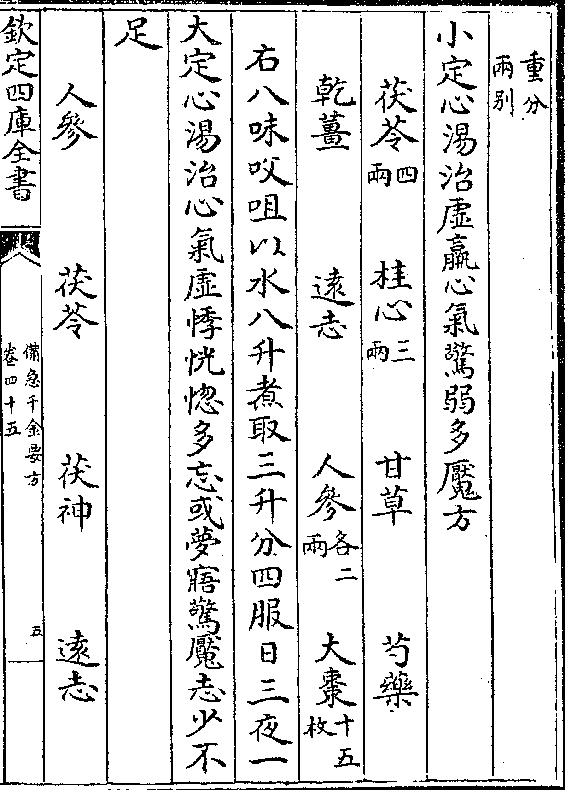 重分兩别
小定心湯治虛羸心氣驚弱多魘方
茯苓四兩 桂心三兩 甘草 芍藥
乾薑 遠志 人參各二兩 大棗十五枚
右八味㕮咀以水八升煮取三升分四服日三夜一
大定心湯治心氣虛悸恍惚多忘或夢寤驚魘志少不
足
人參 茯苓 茯神 遠志
欽定四庫全書
備急千金要方
卷四十五
五